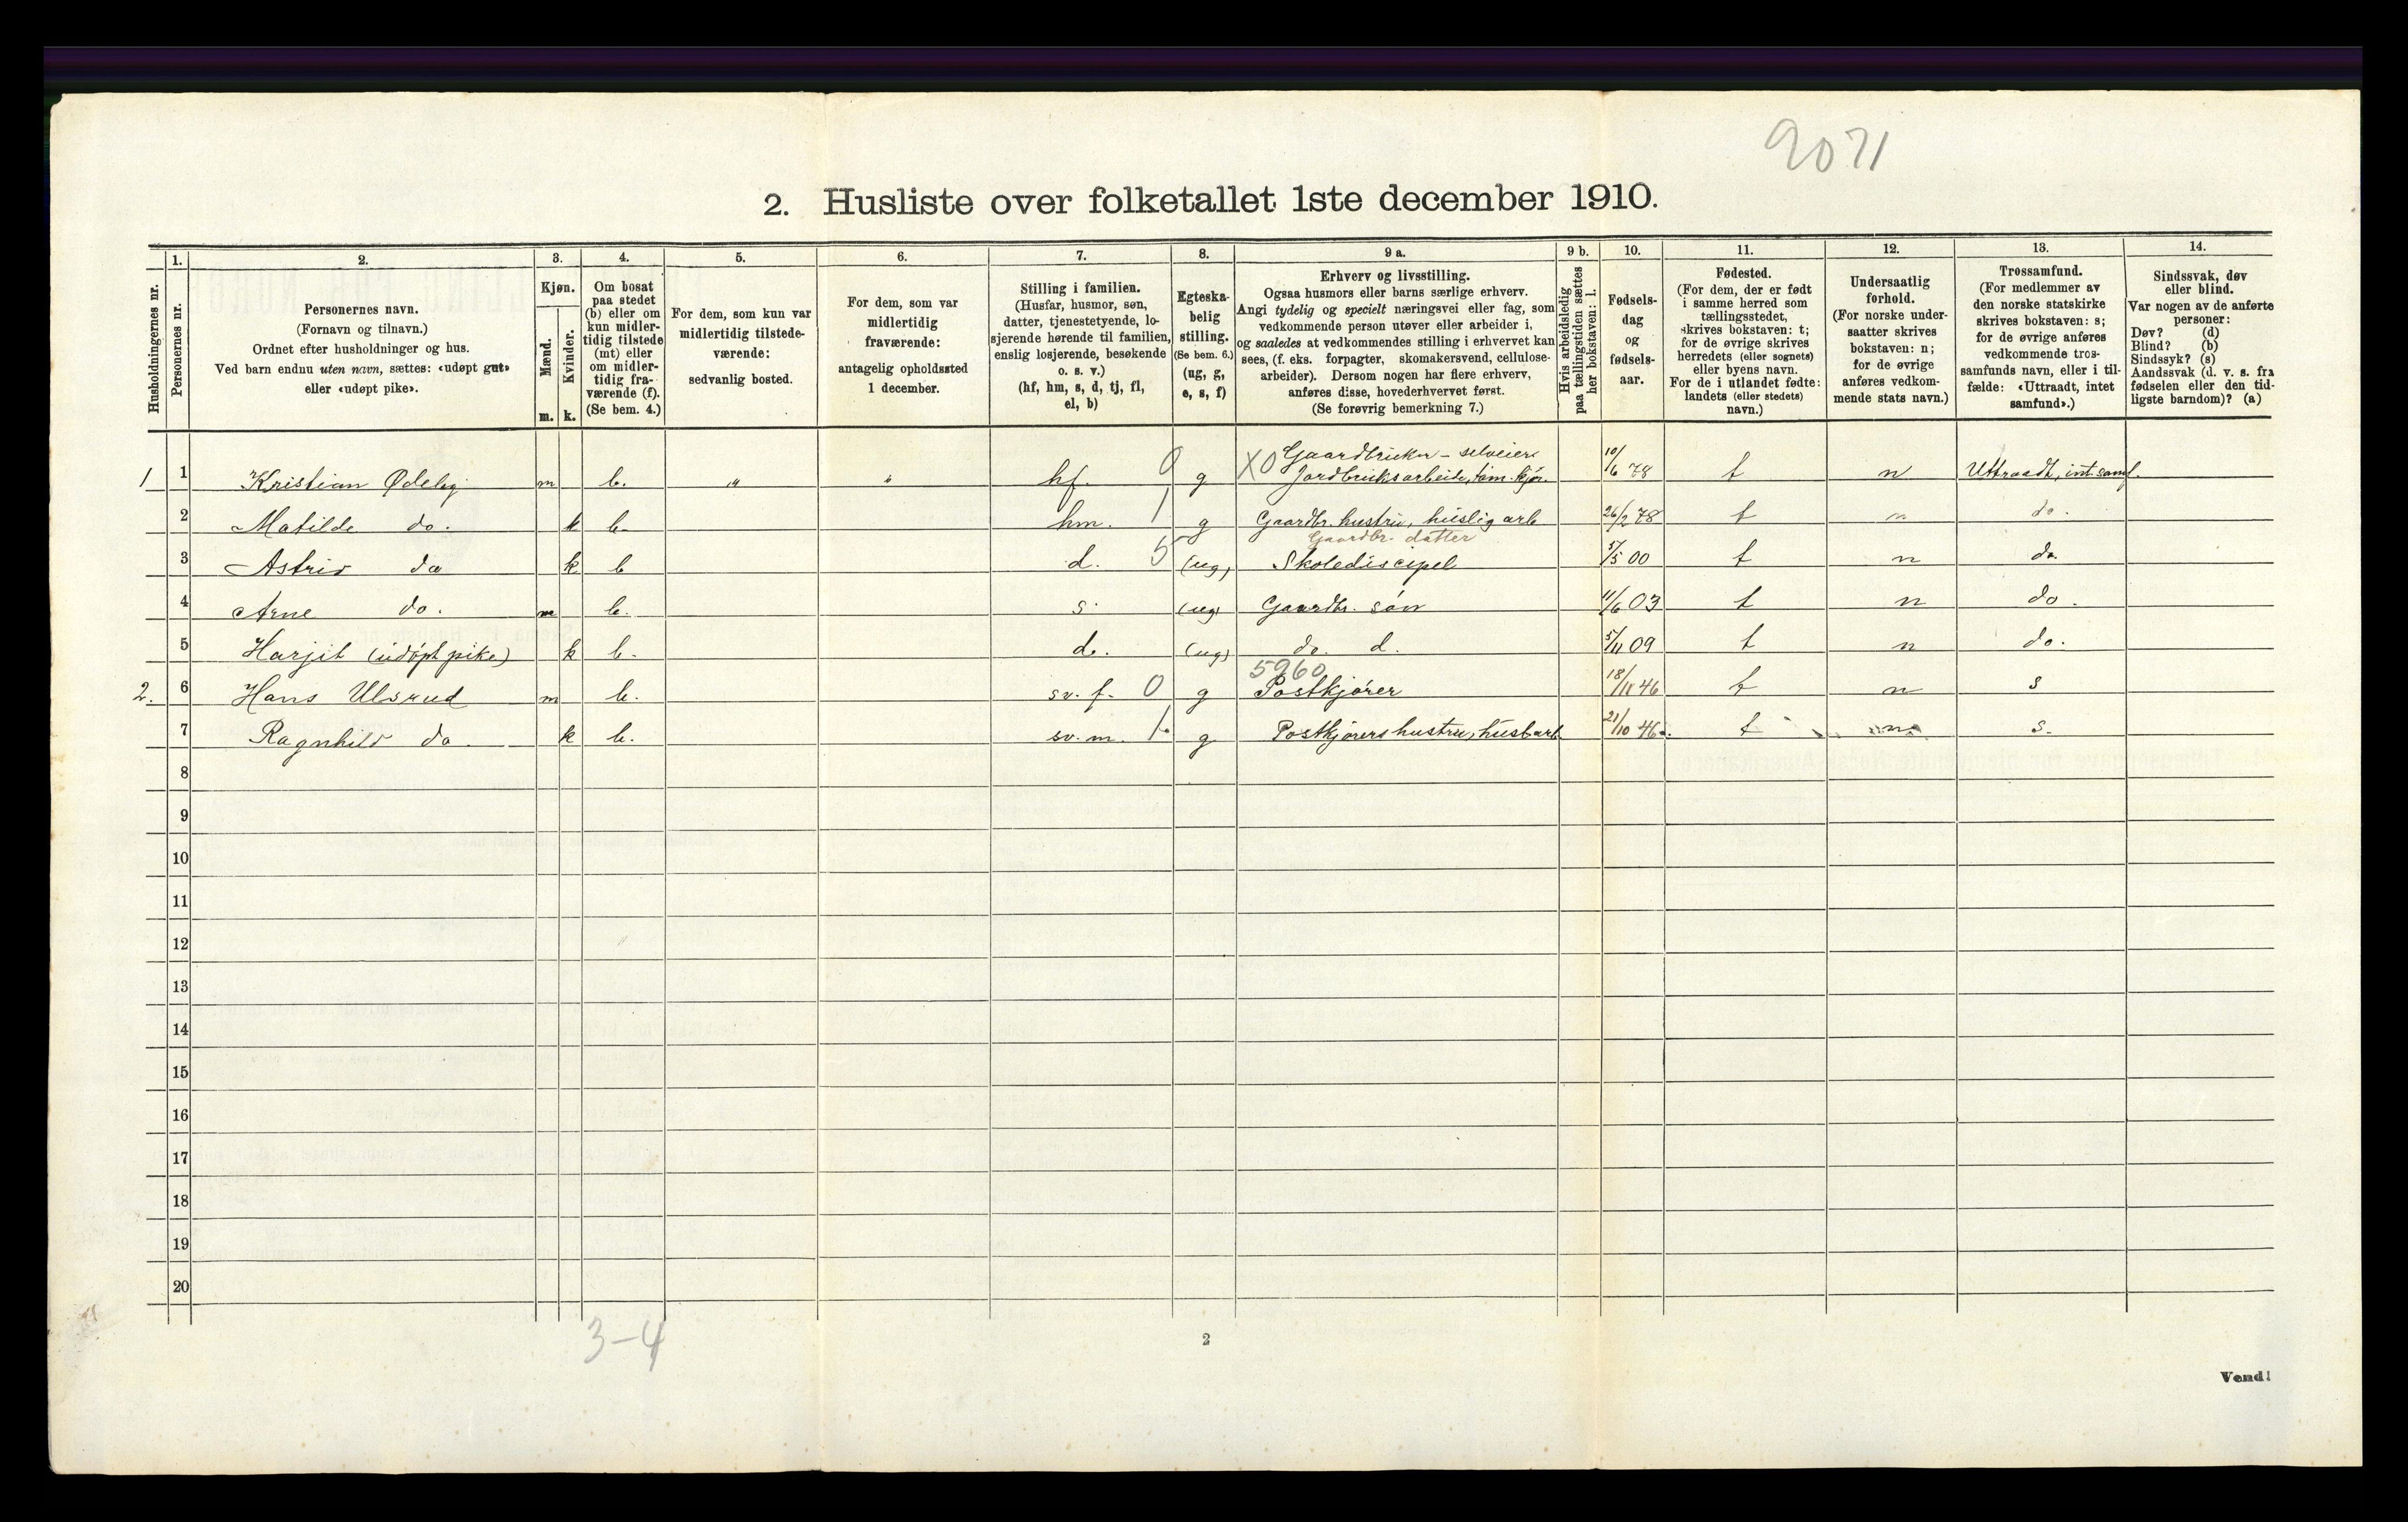 9071
2. Husliste over folketallet 1ste december 1910.
Husholdningernes nr.
1. Personernes nr.
2. Personernes navn.
(Fornavn og tilnavn.)
Ordnet efter husholdninger og hus.
Ved barn endnu uten navn, sættes: «udøpt gut»
eller «udøpt pike».
3. Kjøn.
Mænd. m.
Kvinder. k.
4. Om bosat
paa stedet
(b) eller om
kun midler-
tidig tilstede
(mt) eller
om midler-
tidig fra-
værende (f).
(Se bem. 4.)
5. For dem, som kun var
midlertidig tilstede-
værende:
sedvanlig bosted.
6. For dem, som var
midlertidig
fraværende:
antagelig opholdssted
1 december.
7. Stilling i familien.
(Husfar, husmor, søn,
datter, tjenestetyende, lo-
sjerende hørende til familien,
enslig losjerende, besøkende
o. s. v.)
(hf, hm, s, d, tj, fl,
el, b)
8. Egteska-
belig
stilling.
(Se bem. 6.)
(ug, g,
e, s, f)
9 a. Erhverv og livsstilling.
Ogsaa husmors eller barns særlige erhverv.
Angi tydelig og specielt næringsvei eller fag, som
vedkommende person utøver eller arbeider i,
og saaledes at vedkommendes stilling i erhvervet kan
sees, (f. eks. forpagter, skomakersvend, cellulose-
arbeider). Dersom nogen har flere erhverv,
anføres disse, hovederhvervet først.
(Se forøvrig bemerkning 7.)
9 b. Hvis arbeidsledig
paa tællingstiden sættes
her bokstaven: l.
10. Fødsels-
dag
og
fødsels-
aar.
11. Fødested.
(For dem, der er født
i samme herred som
tællingsstedet,
skrives bokstaven: t;
for de øvrige skrives
herredets (eller sognets)
eller byens navn.
For de i utlandet fødte:
landets (eller stedets)
navn.)
12. Undersaatlig
forhold.
(For norske under-
saatter skrives
bokstaven: n;
for de øvrige
anføres vedkom-
mende stats navn.)
13. Trossamfund.
(For medlemmer av
den norske statskirke
skrives bokstaven: s;
for de øvrige anføres
vedkommende tros-
samfunds navn, eller i til-
fælde: «Uttraadt, intet
samfund».)
14. Sindssvak, døv
eller blind.
Var nogen av de anførte
personer:
Døv? (d)
Blind? (b)
Sindssyk? (s)
Aandssvak (d. v. s. fra
fødselen eller den tid-
ligste barndom)? (a)
Gaardbruker - selveier
1 1 Kristian Ødeby m b. " " hf. 0 g X0 Jordbruksarbeide, tøm. kjør. 10/6 78 t n Uttraadt, int. samf.
2 Matilde do. k b. hm. 1 g Gaardbr. hustru, huslig arb 26/2 78 t n do.
Gaardbr. datter
3 Astrid do k b d. 5 (ug) Skolediscipel 5/5 00 t n do
4 Arne do. m b. s. (ug) Gaardbr. søn 11/6 03 t n do.
5 Harjit (udøpt pike) k b. d. (ug) do. d. 5/11 09 t n do.
5960
2. 6 Hans Ulsrud m b. sv. f. 0 g Postkjører 18/11 46 t n s
7 Ragnhild do. k b. sv. m. 1. g Postkjørers hustru, husarb. 21/10 46. t n s.
8
9
10
11
12
13
14
15
16
17
18
19
20
3-4
2
Vend!